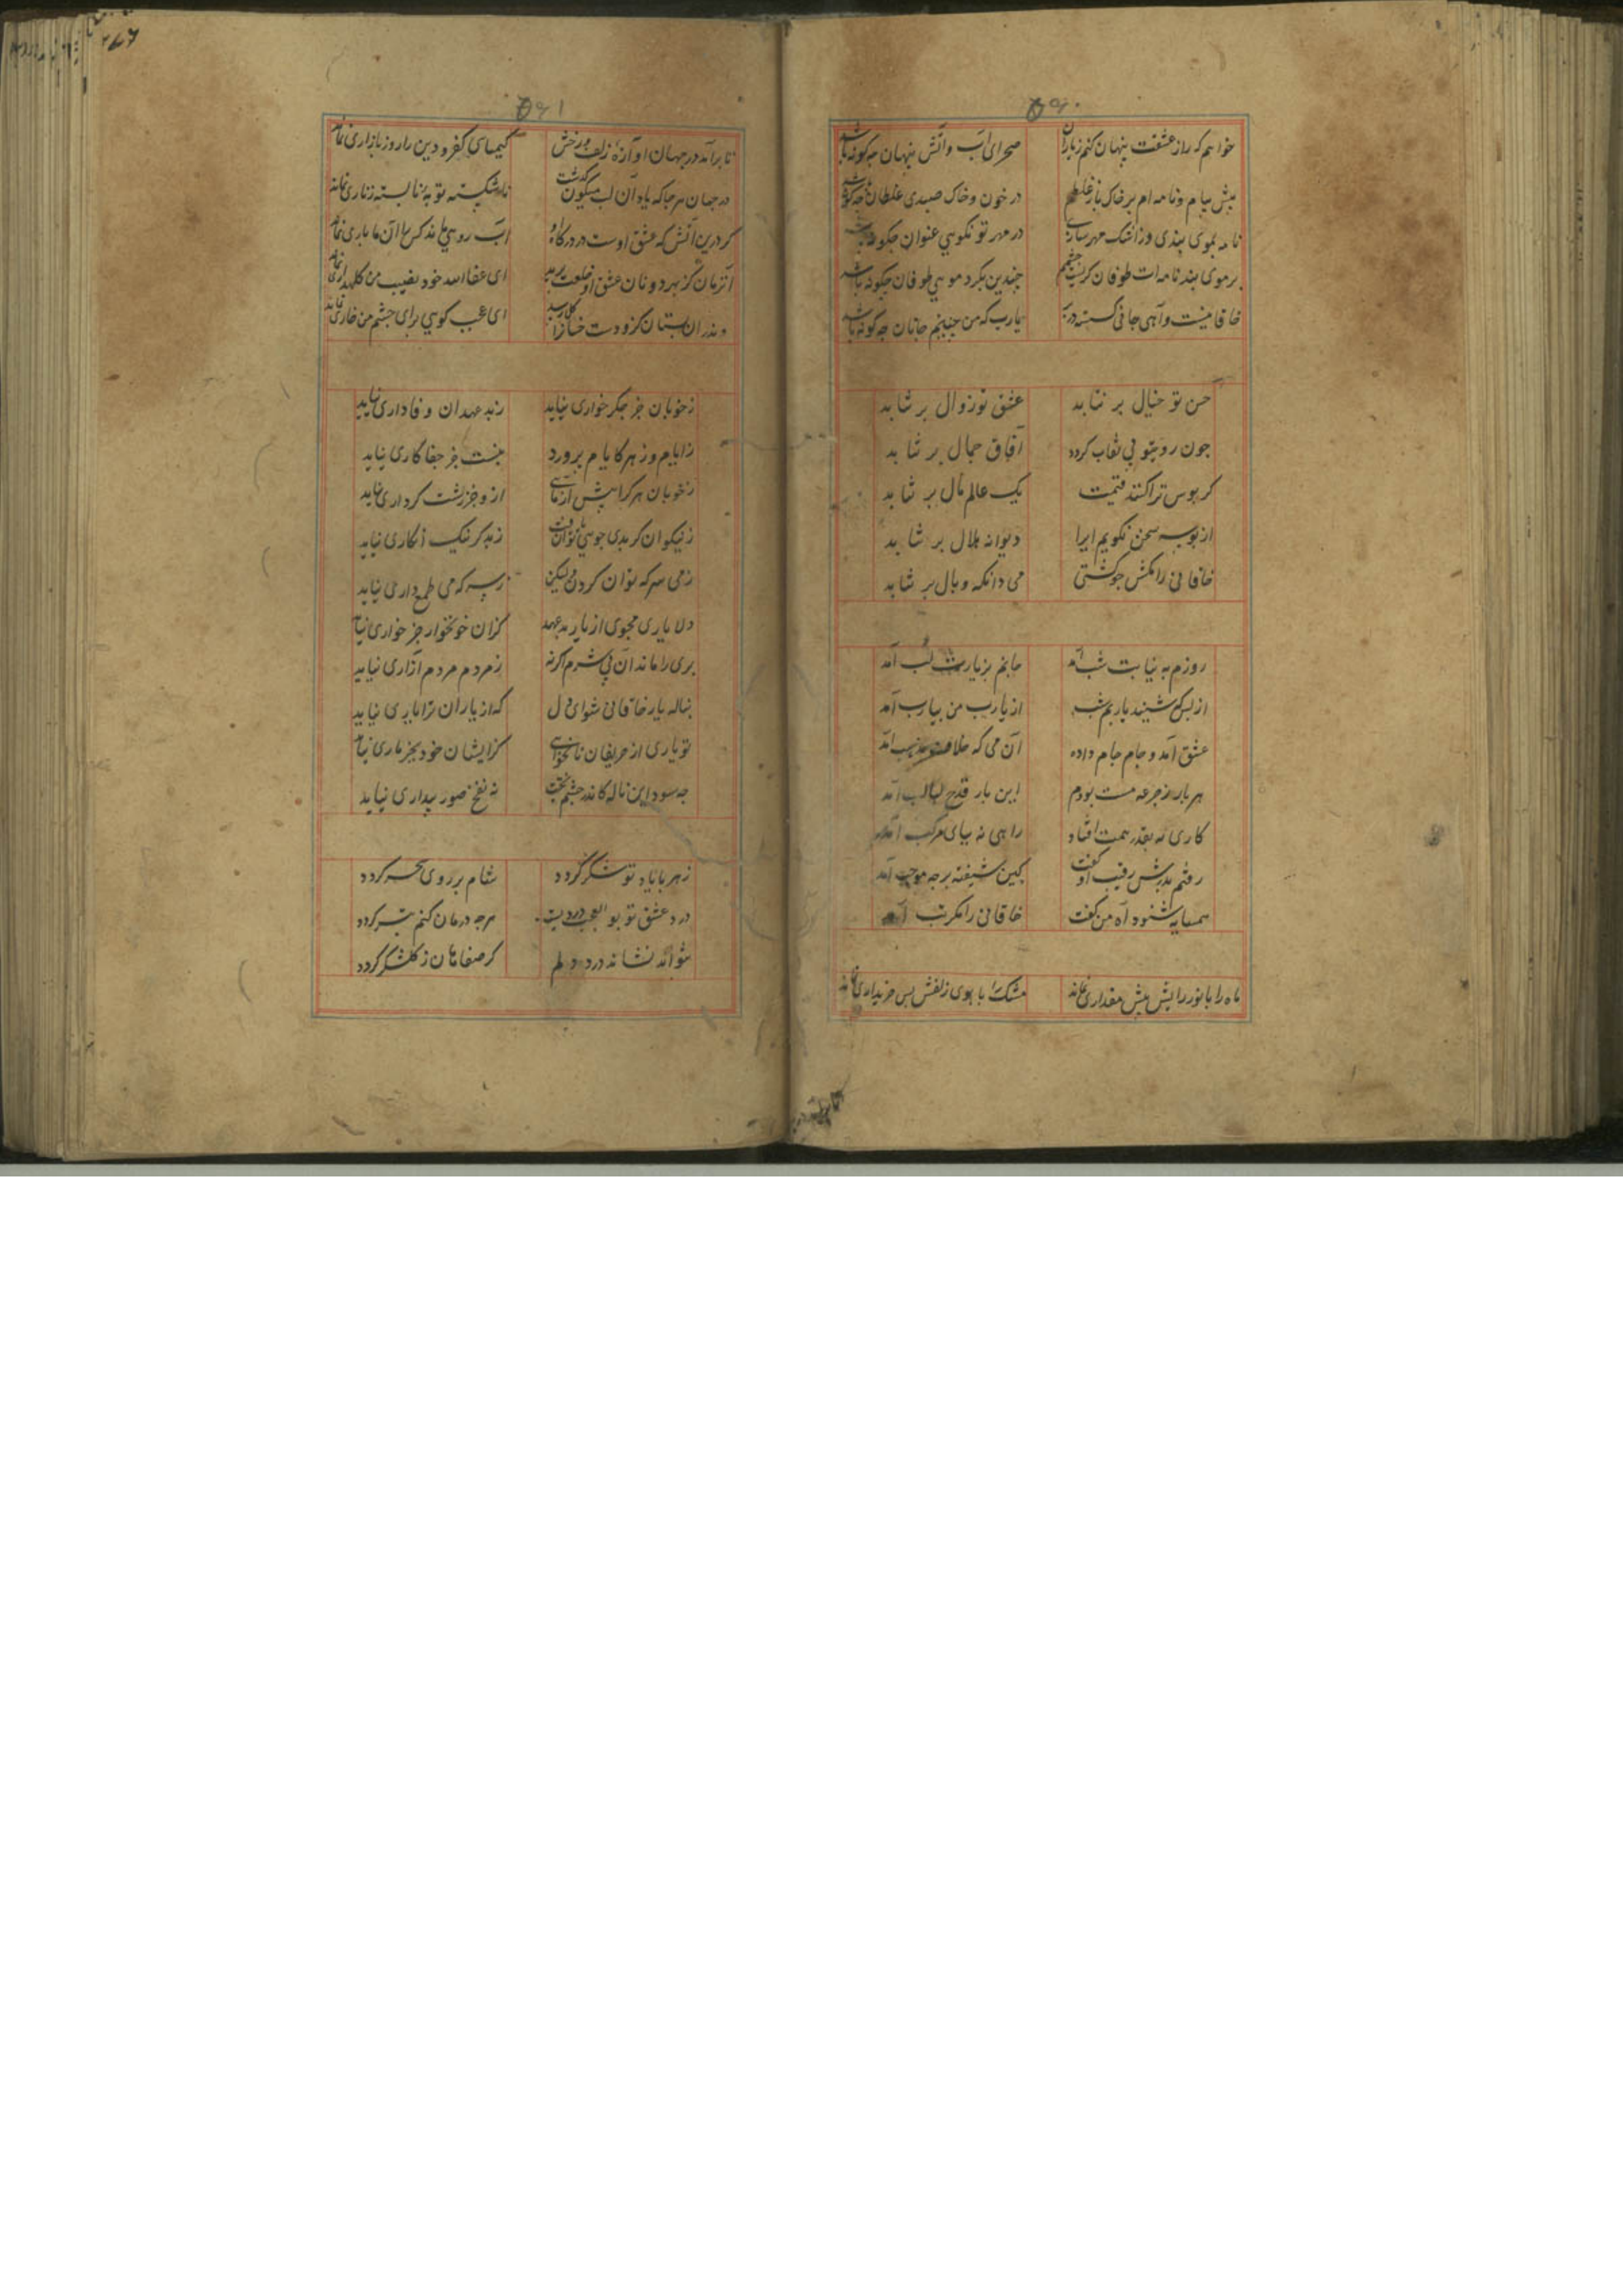 ۵۹۰
خواهم که راز عشقت پنهان کنم ز یاران صحرای آب و آتش پنهان چه کونه باشد
پیش پیام و نامه ام بر خاک باز غلطم در خون و خاک صیدی غلطان چه کونه باشد
نامه بموی بندی وز اشک مهر سازی در مهر تو نکویی عنوان چکونه باشد
بر موی بند نامه ات طوفان کریست چشمم چندین بکرد مویی طوفان چکونه باشد
خاقانیست و آهی جانی شکسته در بر یارب که من چنینم جانان چه کونه باشد
حسن تو خیال بر نتابد عشق تو زوال بر نتابد
چون روی تو بی نقاب کردد آفاق جمال بر نتابد
کر بوس ترا کنند قیمت یک عالم مال بر نتابد
از بوسه سخن نکویم ایرا دیوانه هلال بر نتابد
خاقانی را مکش چو کشتی می دانکه وبال بر نتابد
روزم به نیابت شب آمد جانم بزیارت لب آمد
از بس که شنید یاربم شب از یارب من بیارب آمد
عشق آمد و جام جام داده آن می که خلاف مذهب آمد
هر بار ز جرعه مست بودم این بار قدح لبالب آمد
کاری نه بقدر همت افتاد راهی نه بپای مرکب آمد
رفتم بدرش رقیب او گفت کین شیفته بر چه موجب آمد
همسایه شنود آه من گفت خاقانی را مکر تب آمد
ماه را با نور رایش بیش مقداری نماند مشک را با بوی زلفش بس خریداری نماند
۵۹۱
تا برآمد در جهان آوازهٔ زلف و رخش کیمیای کفر و دین را روز بازاری نماند
در جهان هر جا که یاد آن لب میکون کذشت ناشکسته توبه و نابسته زناری نماند
کر درین آتش که عشق اوست در درکاه او آب رویی ماند کس را آن ما باری نماند
آنزمان کز بهر دونان عشق او خلعت برید ای عفا الله خود نصیب من کلهداری نماند
وندران بستان کزو دست خسان را کل رسید ای عجب کویی برای چشم من خاری نماند
ز خوبان جز جکر خواری نیاید ز بد عهدان وفاداری نیاید
ز ایام و ز هر کایام پرورد بنسبت جز جفا کاری نیاید
ز خوبان هر کرا بیش آزمایی ازو جز زشت کرداری نیاید
ز نیکوان کر بدی جویی توان یافت ز بد کر نیک انکاری نیاید
ز می سرکه توان کردن ولیکن ز سرکه می طمع داری نیاید
دلا یاری مجوی از یار بد عهد کزان خونخوار جز خواری نیاید
پری را ماند آن بی شرم اکرنه ز مردم مردم آزاری نیاید
بناله یار خاقانی شو ای دل که از یاران ترا یاری نیاید
تو یاری از حریفان تا نخواهی کزایشان خود بجز ماری نیاید
چه سود این ناله کاندر چشم بخت به نفخ صور بیداری نیاید
زهر با یاد تو شکر کردد شام بر روی تو سحر کردد
درد عشق تو بوالعجب دردیست هر چه درمان کنم بتر کردد
نتواند نشاند درد دلم کر صفاهان ز کلشکر کردد